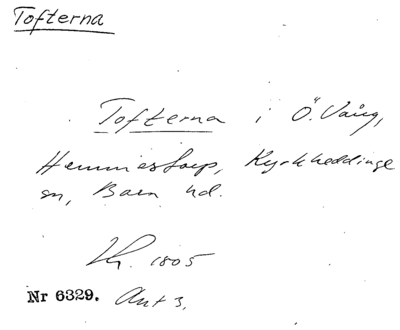 Tofterna
Tofterna i Ö. Vång,
Hemmestorp, Kyrkheddinge
sn, Bara hd.
1805
Nr 6329. Akt 3.